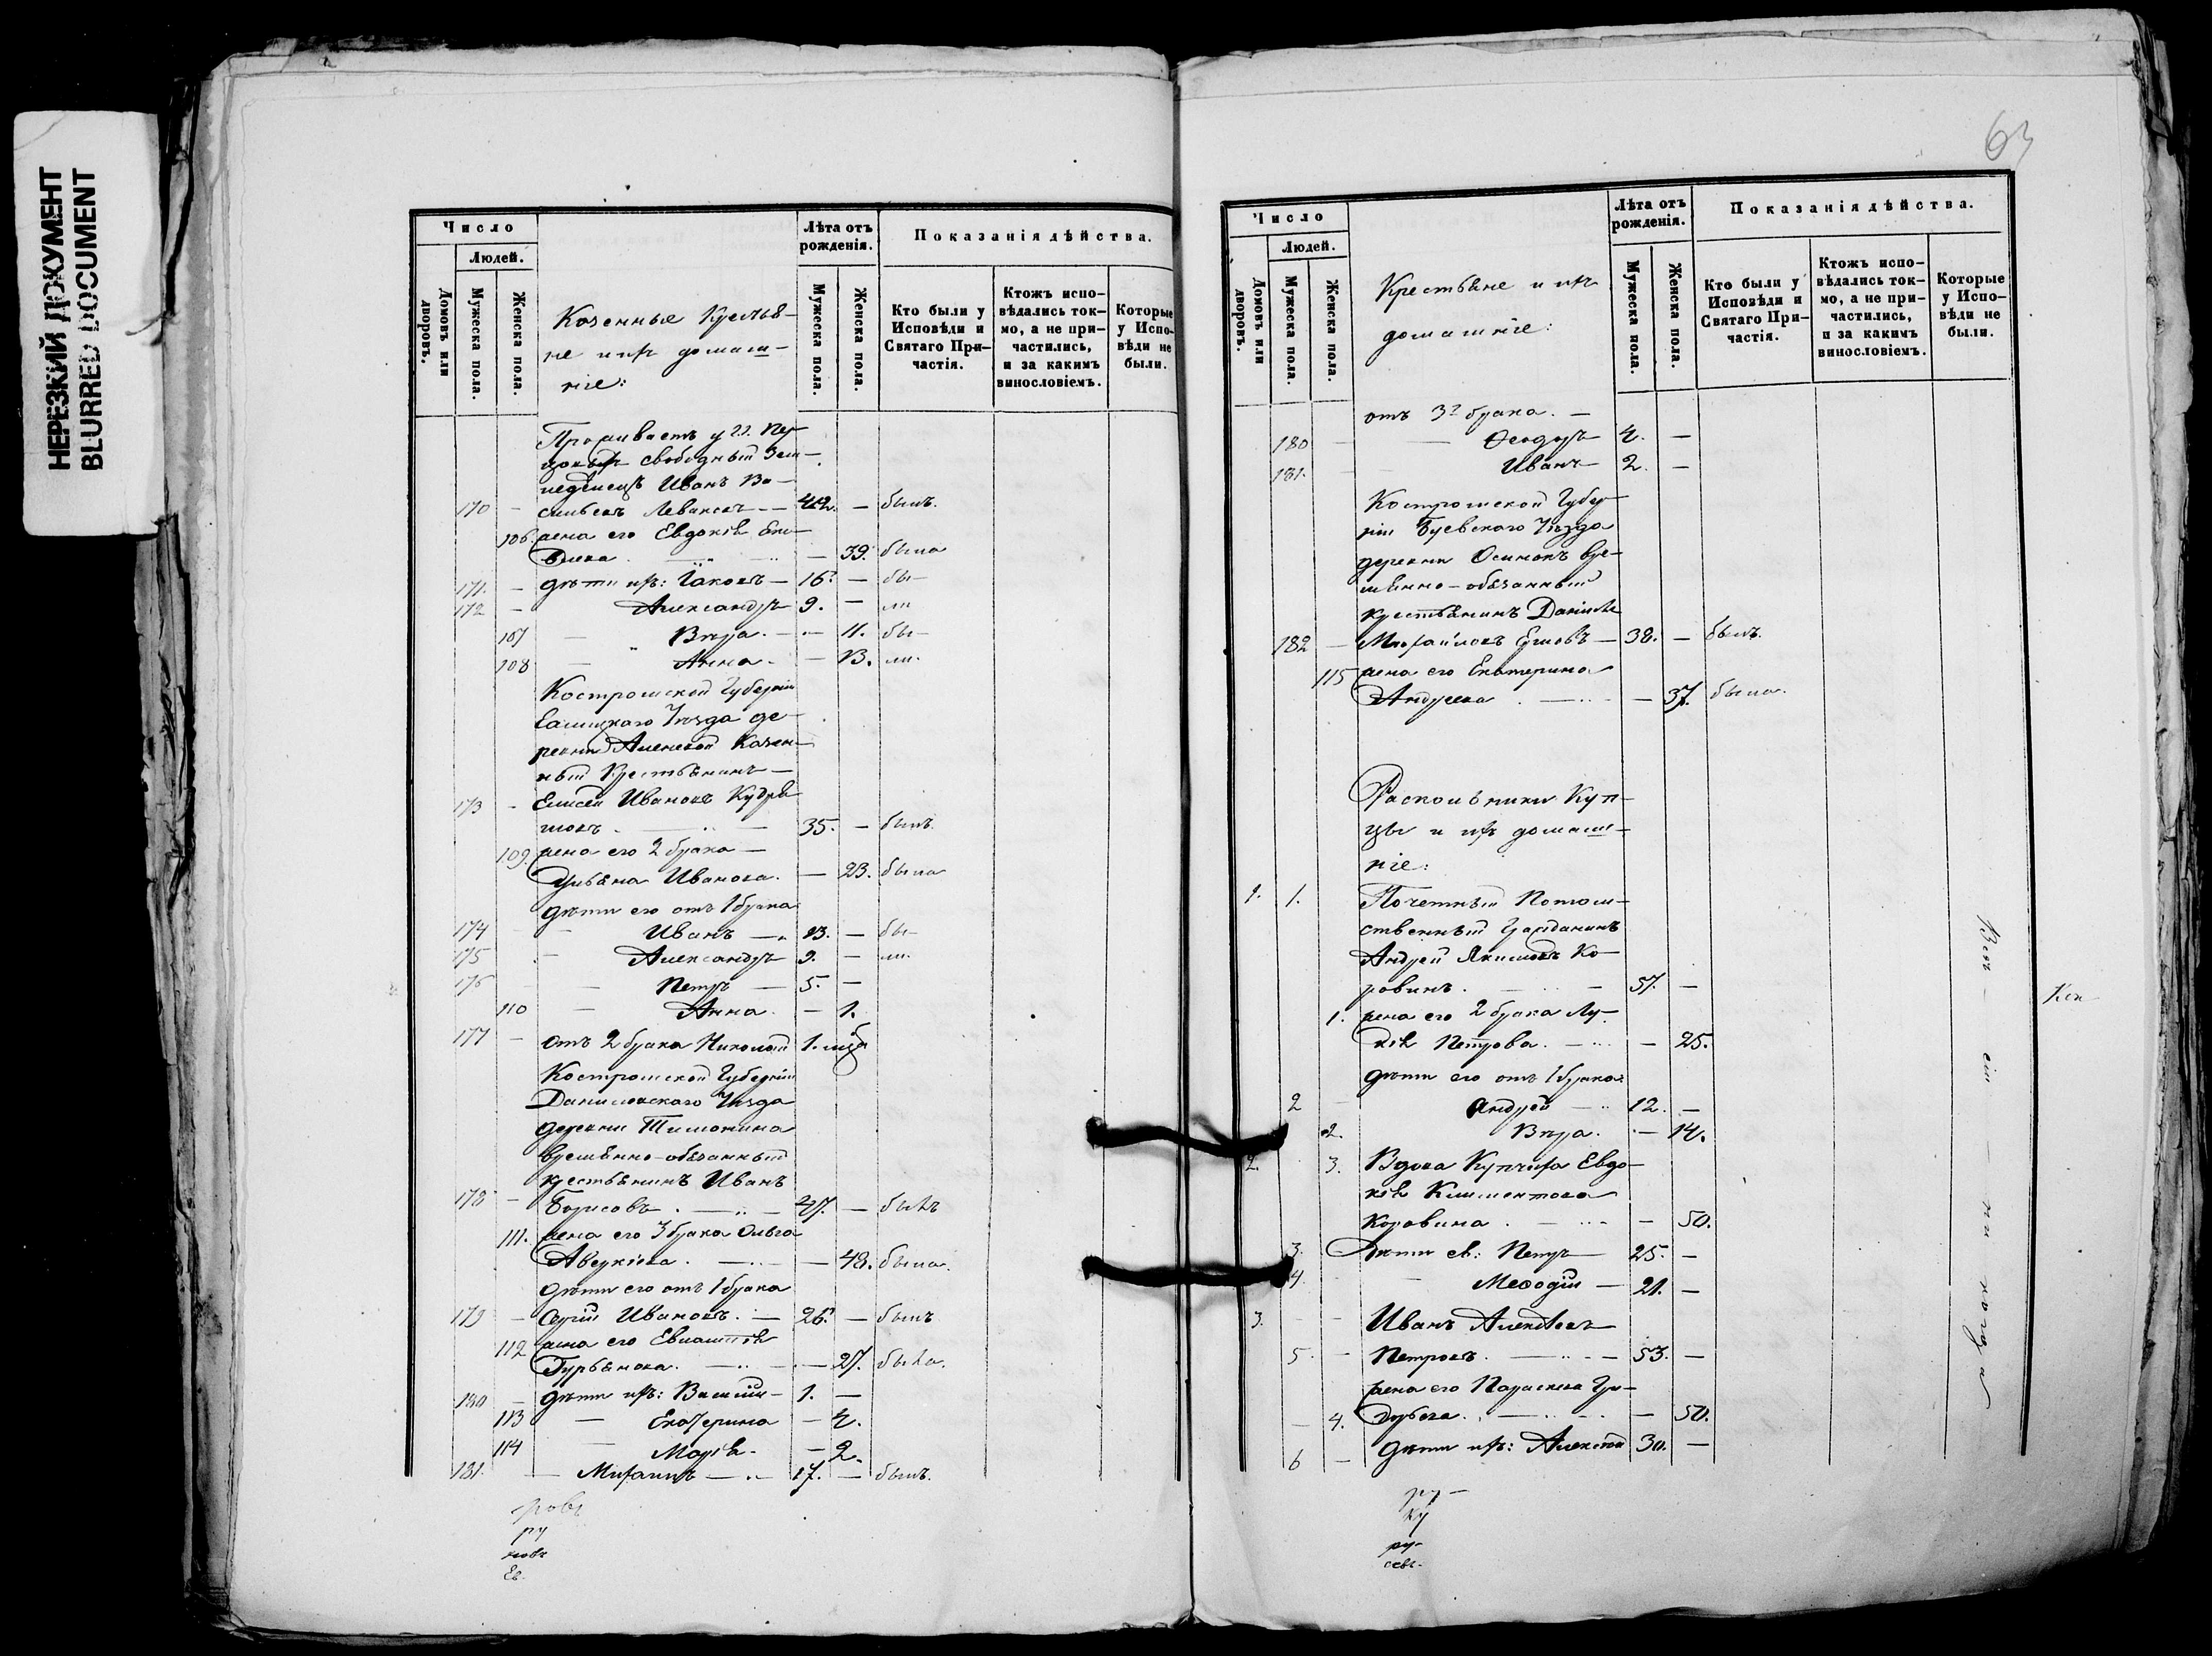 НЕРЕЗКИЙ ДОКУМЕНТ
BLURRED DOCUMENT
Число
Людей.
Домовъ или дворовъ.
Мужеска пола.
Женска пола.
Казенные Крестья-
не и ихъ домаш-
ніе:
Лѣта отъ рожденія.
Мужеска пола.
Женска пола.
Показанія дѣйства.
Кто были у Исповѣди и Святаго При-частія.
Ктожъ испо-вѣдались ток-мо, а не при-частились, и за какимъ винословіемъ.
Которые у Испо-вѣди не были.
Проживаетъ у
свободный Зем-
Иванъ Ва-
170 - сильевъ 42. - былъ.
106. жена его Евдокія
- 39. была
171. - дѣти ихъ: Іаковъ - 16. - бы-
172 - Александръ 9. - ли
107 - Вѣра. - 11. бы-
108 - Анна. - 13. ли.
Костромской Губерніи
Уѣзда де-
ревни Казен-
ный Крестьянинъ -
173 - Елисей Ивановъ Кудря
шовъ. - 35. - былъ.
109. жена его 2 брака -
Ульяна Иванова. - 23. была
дѣти его отъ 1 брака
174 - Иванъ - 13. - бы-
175 - Александръ 9. - ли.
176 - Петръ - 5. -
110 - Анна. - 1.
177 - отъ 2 брака Николай 1.
Костромской Губерніи
Даниловскаго Уѣзда
деревни Тимонина
времянно-обязанный
крестьянинъ Иванъ
178 - Борисовъ. - 47. - былъ
111. жена его 3 брака Ольга
Аверкіева. - 48. была.
дѣти его отъ 1 брака
179 - Сергій Ивановъ. - 26. - былъ
112 жена его
- 27. была.
180 - дѣти ихъ: Василій - 1. -
113 - Екатерина - 4.
114 - Марія. - 2.
181. - Михаилъ - 17. - былъ.
ру
63
Число
Людей.
Домовъ или дворовъ.
Мужеска пола.
Женска пола.
Крестьяне и ихъ
домашніе:
Лѣта отъ рожденія.
Мужеска пола.
Женска пола.
Показанія дѣйства.
Кто были у Исповѣди и Святаго При-частія.
Ктожъ испо-вѣдались ток-мо, а не при-частились, и за какимъ винословіемъ.
Которые у Испо-вѣди не были.
отъ 3го брака. -
180 - Ѳеодоръ 4. -
181. - Иванъ 2. -
Костромской Губер-
ніи Буевскаго Уѣзда
деревни Осиновъ вре-
мянно-обязанный
крестьянинъ Даніилъ
182 - Михайловъ - 38. - былъ.
115 жена его Екатерина
Андреева. - 37. была.
Раскольники Куп-
цы и ихъ домаш-
ніе:
1. 1. Почетный Потом-
ственный Гражданинъ
Андрей Якимовъ Ко-
ровинъ. - 57. -
1. жена его 2 брака Лу-
кія Петрова. - 25.
дѣти его отъ 1 брака:
2 - Андрей - 12. -
2. Вѣра. - 14.
2. 3. Вдова Купчиха Евдо-
кія Климентова
Коровина. - 50.
3. Дѣти ея: Петръ 25. -
4. - Меѳодій - 21. -
3. - Иванъ Алексѣевъ
5. - Петровъ. - 53. -
жена его Параскева Гри-
- 4. горьева. - 50.
6 - дѣти ихъ: Алексѣй 30. -
Всѣ - сіи - ни когда
ку
ру-